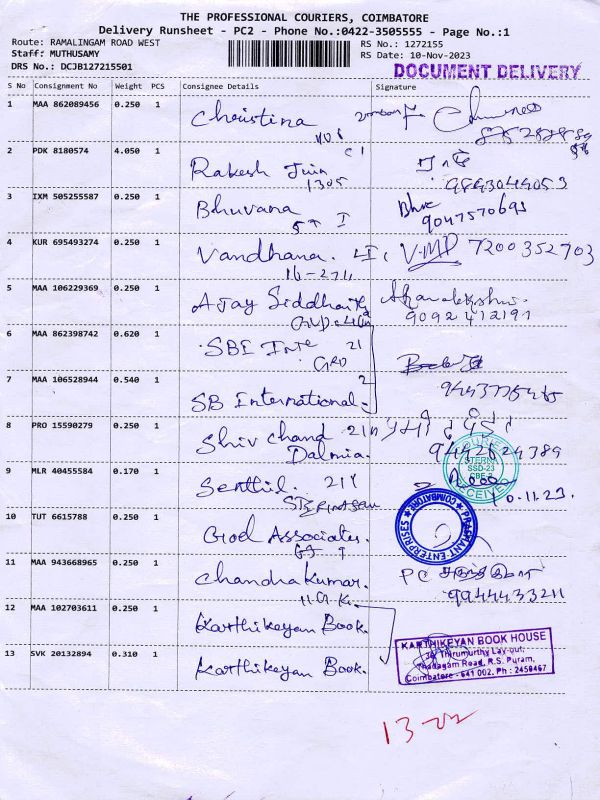 THE PROFESSIONAL COURIERS, COIMBATORE
Delivery Runsheet - PC2 - Phone No.:0422-3505555 - Page No.:1
Route: RAMALINGAM ROAD WEST
Staff: MUTHUSAMY
DRS No.: DCJB127215501
RS No.: 1272155
RS Date: 10-Nov-2023
DOCUMENT DELIVERY
S No Consignment No Weight PCS Consignee Details Signature
1 MAA 862089456 0.250 1 Christina
2 PDK 8180574 4.050 1 Rakesh Jain
1305 9843044053
3 IXM 505255587 0.250 1 Bhuvana
9047570693
4 KUR 695493274 0.250 1 Vandhana. V.MP 7200352703
16-274
5 MAA 106229369 0.250 1 Ajay Siddharth
9092412191
6 MAA 862398742 0.620 1 SBI Inte 21
GRD
7 MAA 106528944 0.540 1 SB International
8 PRO 15590279 0.250 1 Shiv Chand 21
Dalmia. 9442624389
9 MLR 40455584 0.170 1 Senthil. 214
10.11.23.
STERNA
SSD-23
CBE-2
RECEIVED
10 TUT 6615788 0.250 1 Goel Associates.
PRASHANT ENTERPRISES
COIMBATORE
11 MAA 943668965 0.250 1 Chandra Kumar.
9944433211
12 MAA 102703611 0.250 1 Karthikeyan Book.
13 SVK 20132894 0.310 1 Karthikeyan Book.
KARTHIKEYAN BOOK HOUSE
Thirumurthy Lay-out,
Thadagam Road, R.S. Puram,
Coimbatore - 641 002. Ph : 2458467